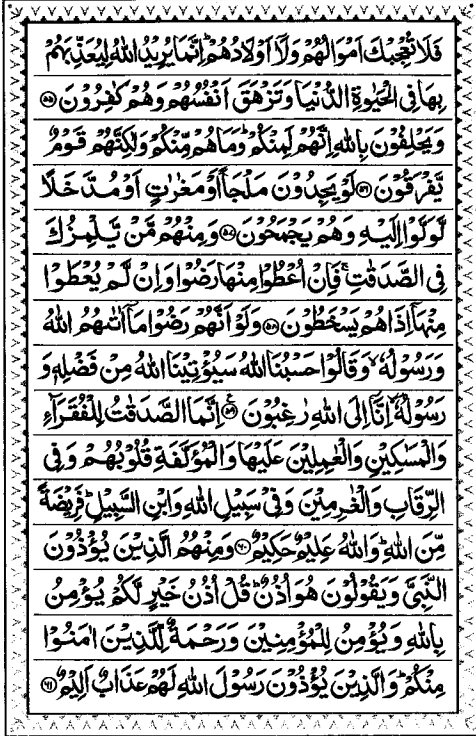 فَلَا تُعْجِبْكَ اَمْوَالُهُمْ وَلَآ اَوْلَادُهُمْ ؕ اِنَّمَا يُرِيْدُ اللّٰهُ لِيُعَذِّبَهُمْ
بِهَا فِى الْحَيٰوةِ الدُّنْيَا وَتَزْهَقَ اَنْفُسُهُمْ وَهُمْ كٰفِرُوْنَ ۝۵۵
وَيَحْلِفُوْنَ بِاللّٰهِ اِنَّهُمْ لَمِنْكُمْ ؕ وَمَا هُمْ مِّنْكُمْ وَلٰكِنَّهُمْ قَوْمٌ
يَّفْرَقُوْنَ ۝۵۶ لَوْ يَجِدُوْنَ مَلْجَاً اَوْ مَغٰرٰتٍ اَوْ مُدَّخَلًا
لَّوَلَّوْا اِلَيْهِ وَهُمْ يَجْمَحُوْنَ ۝۵۷ وَمِنْهُمْ مَّنْ يَّلْمِزُكَ
فِى الصَّدَقٰتِ ۚ فَاِنْ اُعْطُوْا مِنْهَا رَضُوْا وَاِنْ لَّمْ يُعْطَوْا
مِنْهَآ اِذَا هُمْ يَسْخَطُوْنَ ۝۵۸ وَلَوْ اَنَّهُمْ رَضُوْا مَآ اٰتٰىهُمُ اللّٰهُ
وَرَسُوْلُهٗ ۙ وَقَالُوْا حَسْبُنَا اللّٰهُ سَيُؤْتِيْنَا اللّٰهُ مِنْ فَضْلِهٖ وَ
رَسُوْلُهٗٓ ۙ اِنَّآ اِلَى اللّٰهِ رٰغِبُوْنَ ۝۵۹ ع اِنَّمَا الصَّدَقٰتُ لِلْفُقَرَآءِ
وَالْمَسٰكِيْنِ وَالْعٰمِلِيْنَ عَلَيْهَا وَالْمُؤَلَّفَةِ قُلُوْبُهُمْ وَفِى
الرِّقَابِ وَالْغٰرِمِيْنَ وَفِىْ سَبِيْلِ اللّٰهِ وَابْنِ السَّبِيْلِ ؕ فَرِيْضَةً
مِّنَ اللّٰهِ ؕ وَاللّٰهُ عَلِيْمٌ حَكِيْمٌ ۝۶۰ وَمِنْهُمُ الَّذِيْنَ يُؤْذُوْنَ
النَّبِىَّ وَيَقُوْلُوْنَ هُوَ اُذُنٌ ؕ قُلْ اُذُنُ خَيْرٍ لَّكُمْ يُؤْمِنُ
بِاللّٰهِ وَيُؤْمِنُ لِلْمُؤْمِنِيْنَ وَرَحْمَةٌ لِّلَّذِيْنَ اٰمَنُوْا
مِنْكُمْ ؕ وَالَّذِيْنَ يُؤْذُوْنَ رَسُوْلَ اللّٰهِ لَهُمْ عَذَابٌ اَلِيْمٌ ۝۶۱